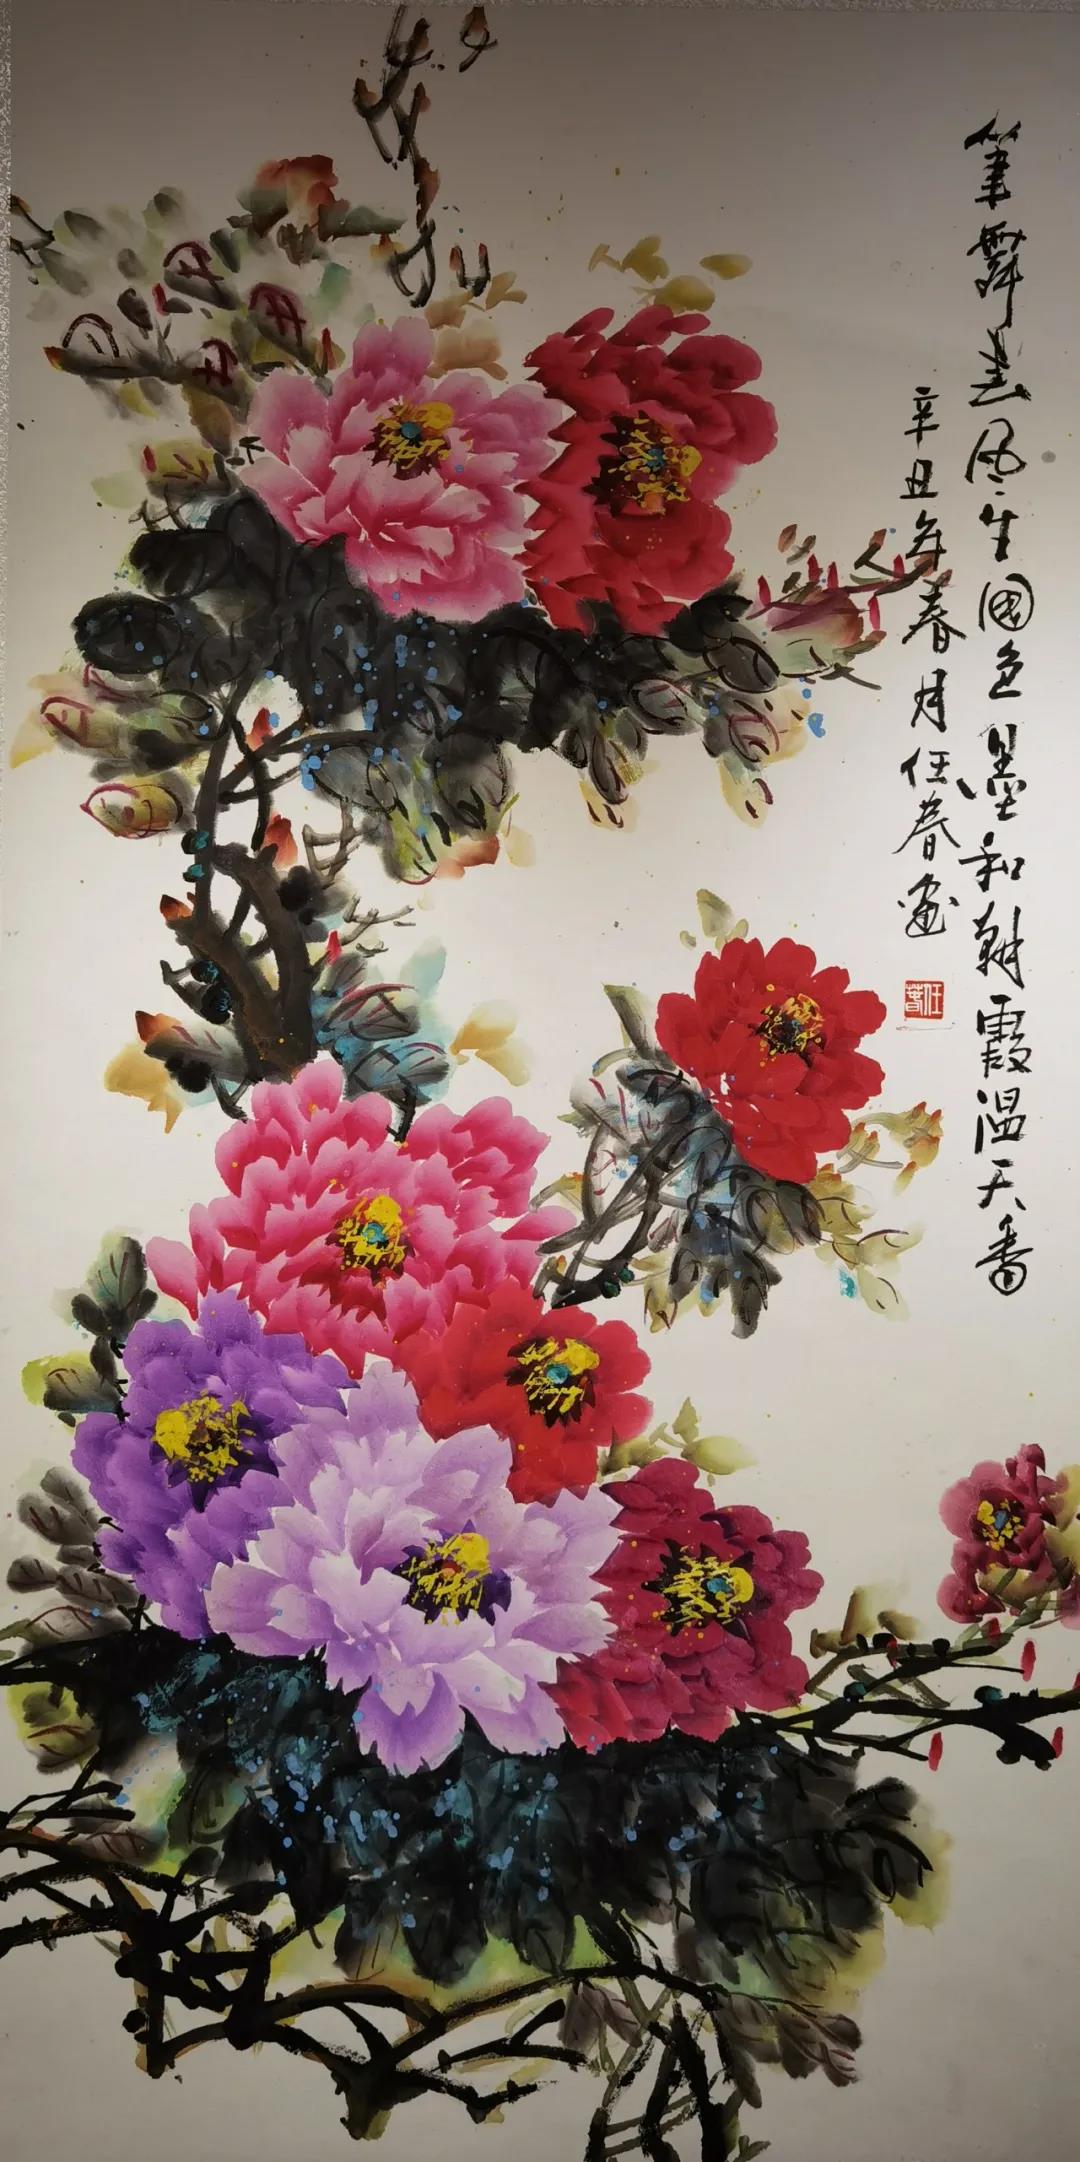 筆舞春风生國色墨和朝霞温天香
辛丑年春月任春画
任春